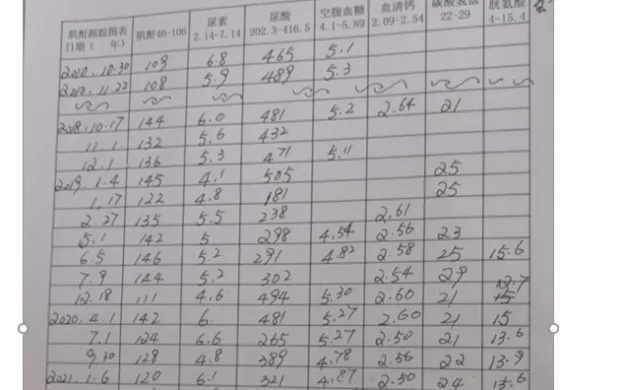 肌酐跟踪图表 日期( 年) 肌酐40-106 尿素 2.14-7.14 尿酸 202.3-416.5 空腹血糖 4.1-5.89 血清钙 2.09-2.54 碳酸氢盐 22-29 胱氨酸 4-15.4
2010.10.30 109 6.8 465 5.1
2010.11.22 108 5.9 489 5.3
2018.10.17 144 6.0 481 5.2 2.64 21
11.1. 132 5.6 432
12.1 136 5.3 471 5.11
2019.1.4 145 4.1 505 25
1.17 122 4.8 181 25
2.27 135 5.5 238 2.61
5.1 142 5 298 4.54 2.56 23
6.5 146 5.2 291 4.82 2.58 25 15.6
7.9 144 5.2 302 2.54 29 12.7
12.18 111 4.6 494 5.30 2.60 21 15
2020.4.1 142 6. 481 5.27 2.60 21 15
7.1 124 6.6 265 5.27 2.50 21 13.6
9.30 128 4.8 389 4.78 2.56 22 13.9
2021.1.6 120 6.1 321 4.87 2.50 24 13.6